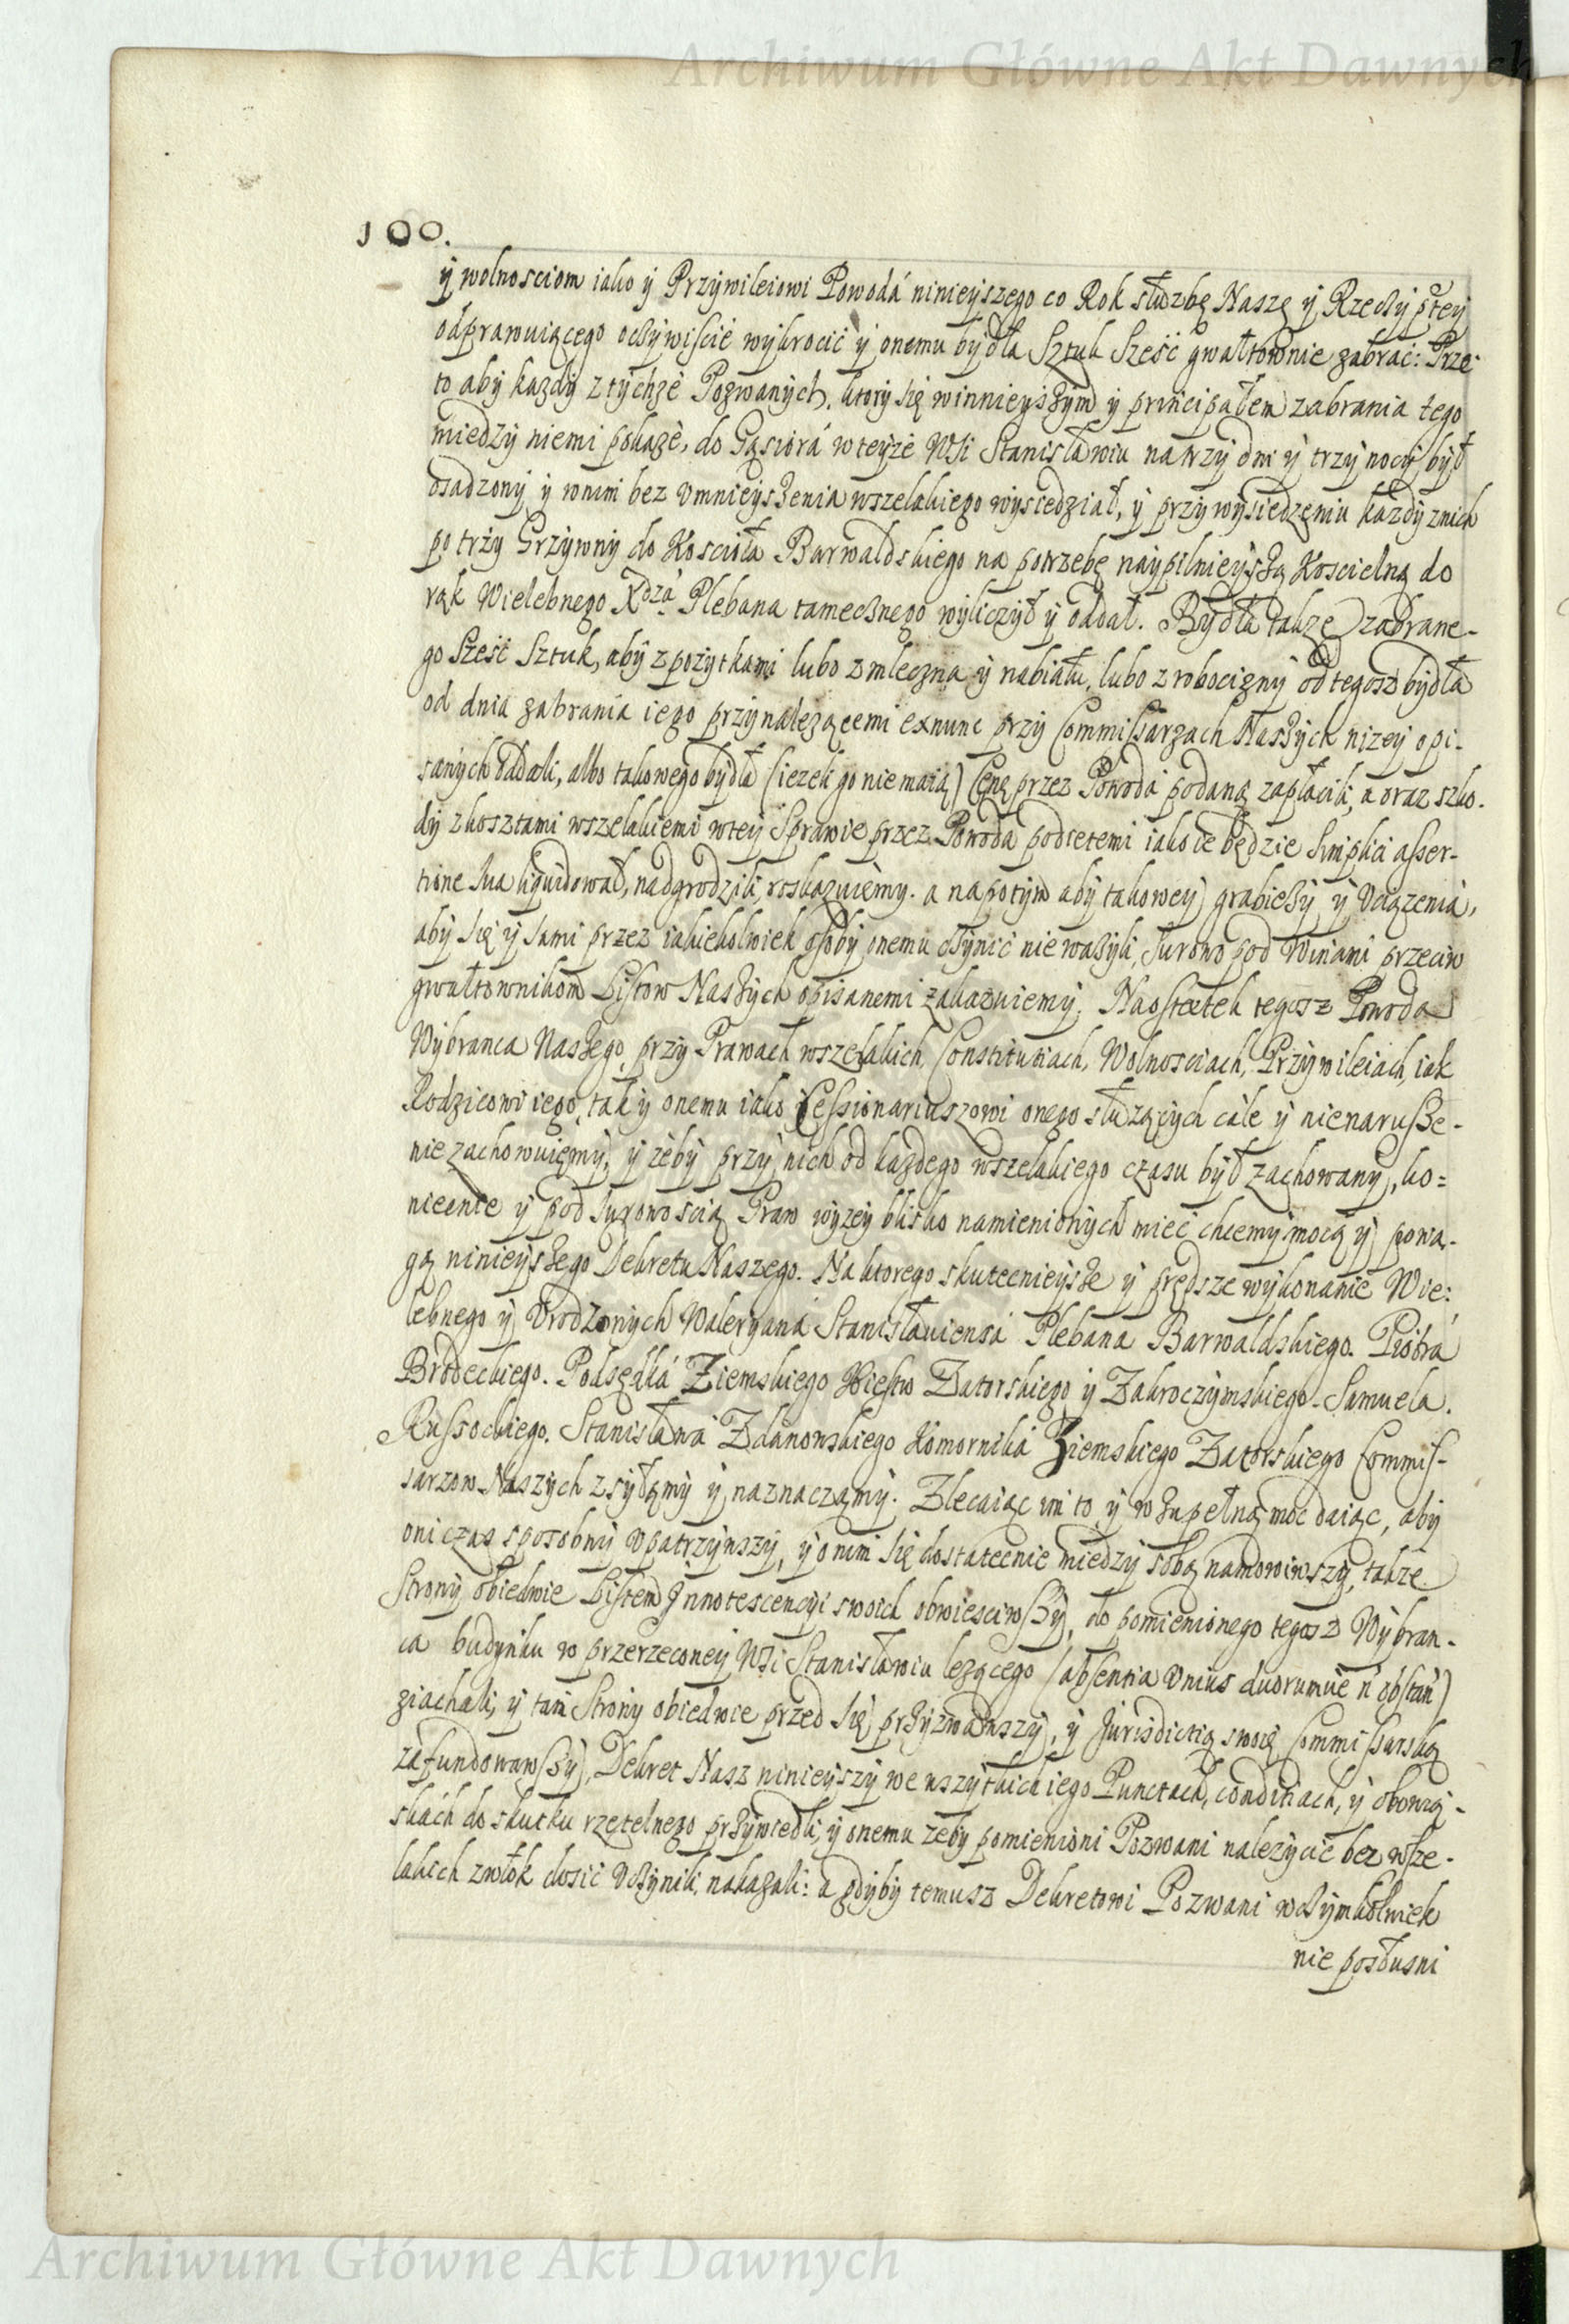 Archiwum Główne Akt Dawnych
100.
ÿ wolnosciom iako ÿ Przÿwileiowi Powodá ninieÿszego co Rok słuzbę Naszę ÿ Rzeczÿ ptey
odprawuiącego oczÿwiscie wÿkrocic ÿ onemu bÿdła Sztuk Szesć gwałtownie zabrac: Prze-
to abÿ kazdÿ z tÿchze Pozwanÿch, ktorÿ się winnieÿszÿm ÿ principałem zabrania tego
miedzÿ niemi pokaze, do Gąsiorá w teÿze Wsi Stanisławiu na trzÿ dni ÿ trzÿ nocÿ bÿł
osadzonÿ ÿ w nim bez vmnieÿszenia wszelakiego wÿsiedział, ÿ przÿ wÿsiedzeniu kazdÿ z nich
po trzÿ Grzÿwnÿ do Koscioła Barwałdskiego na potrzebę naÿpilnieÿszą Koscielną do
rąk Wielebnego Xdzá Plebana tamecznego wÿliczÿł ÿ oddał. Bÿdła takze zabrane-
go Szesć Sztuk, abÿ z pozÿtkami lubo z mleczna ÿ nabiału, lubo z robociznÿ od tegosz bÿdła
od dnia zabrania iego przÿnalezącemi exnunc przÿ Commissarzach Naszÿch nizeÿ opi-
sanÿch oddali, albo takowego bÿdła (iezeli go nie maią) Cenę przez Powodá podaną zapłacili, a oraz szko-
dÿ z kosztami wszelakiemi w teÿ Sprawie przez Powoda podietemi iako ie będzie simplici asser-
tione sua liquidował, nadgrodzili, roskazuiemÿ. a napotÿm abÿ takoweÿ grabiezÿ ÿ vciązenia,
abÿ się ÿ sami przez iakiekolwiek osobÿ onemu czÿnic nie wazÿli, surowo pod Winami przeciw
gwałtownikom Listow Naszÿch opisanemi zakazuiemÿ. Naostatek tegosz Powoda
Wÿbranca Naszego przÿ Prawach wszelakich, Constitutiach, Wolnosciach, Przÿwileiach, iak
Rodzicowi iego, tak ÿ onemu iako Cessionariuszowi onego słuzącÿch cale ÿ nienarusze-
nie zachowuiemÿ, ÿ zebÿ przÿ nich od kazdego wszelakiego czasu bÿł zachowanÿ, ko=
niecnie ÿ pod surowoscią Praw wÿzeÿ blisko namienionÿch miec chcemÿ mocą ÿ powa-
gą ninieÿszego Dekretu Naszego. Na ktorego skutecnieÿsze ÿ prędsze wÿkonanie Wie:
lebnego ÿ Vrodzonÿch Walerÿana Stanisławiensa Plebana Barwaldskiego. Piotrá
Brodeckiego. Podsędká Ziemskiego Xiestw Zatorskiego ÿ Zakroczÿmskiego. Samuela.
Russockiego. Stanisławá Zdanowskiego Komorniká Ziemskiego Zatorskiego Commis-
sarzow Naszÿch zsÿłamÿ ÿ naznaczamÿ. Zlecaiąc im to ÿ w zupełną moc daiąc, abÿ
oni czas sposobnÿ vpatrzÿwszÿ, ÿ o nim się dostatecnie miedzÿ sobą namowiwszÿ, takze
Stronÿ obiedwie Listem Innotescencÿi swoich obwiesciwszÿ, do pomienionego tegosz Wÿbran-
ca budÿnku w przerzeconeÿ Wsi Stanisławiu lezącego (absentia vnius duorumue n obstan)
ziachali, ÿ tam Stronÿ obiedwie przed się przÿzwawszÿ, ÿ Jurisdictią swoię Commissarską
zafundowawszÿ, Dekret Nasz ninieÿszÿ we wszÿtkich iego Punctach, conditiach, ÿ obowią-
skách do skutku rzetelnego przÿwiedli, ÿ onemu zebÿ pomienioni Pozwani nalezÿcie bez wsze-
lakich zwłok dosic vczÿnili, nakazali: a gdÿbÿ temusz Dekretowi Pozwani w czÿmkolwiek
nie posłusni
Archiwum Główne Akt Dawnych